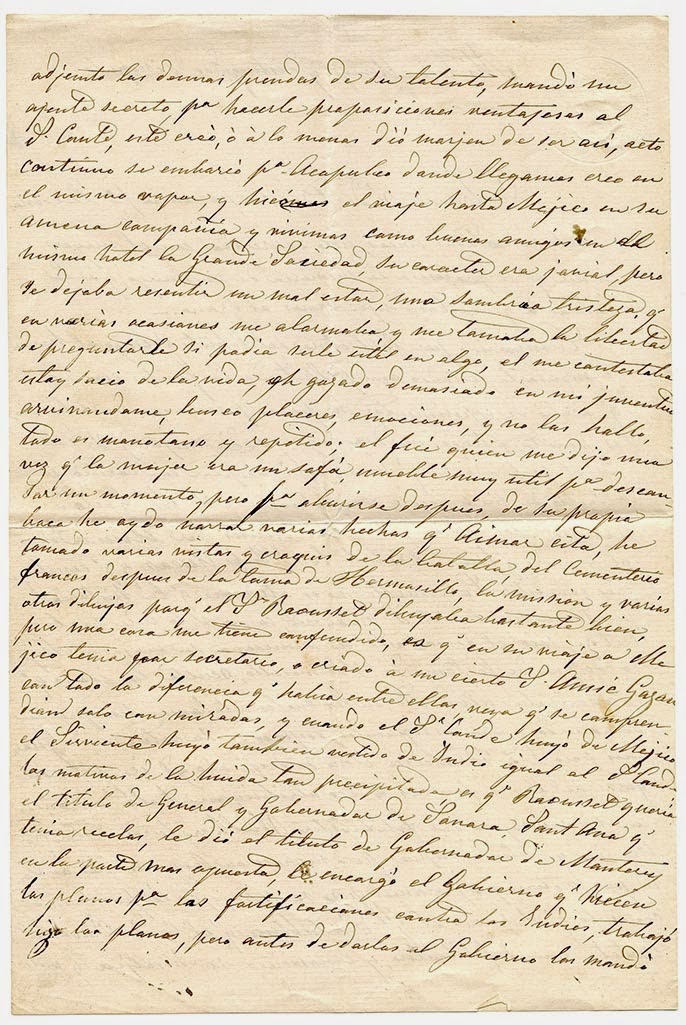 adjunto las demas prendas de su talento, mandó un
agente secreto pa hacerle proposiciones ventajosas al
Sr. Conde, este creó, ó á lo menos dió marjen de ser asi, acto
continuo se embarcó pa Acapulco donde llegamos creo en
el mismo vapor, y hicimos el viaje hasta Méjico en su
amena compañia y vivimos como buenos amigos en el
mismo hotel la Grande Sociedad, su caracter era jovial pero
se dejaba resentir un mal estar, una sombria tristeza, qe
en varias ocasiones me alarmaba y me tomaba la libertad
de preguntarle si podia serle util en algo, el me contestaba
estoy sacio de la vida, he gozado demasiado en mi juventud
arruinandome, busco placeres, emociones, y no las hallo,
todo es monotono y repetido; el fué quien me dijo una
vez qe la mujer era un sofá, mueble muy util pa descan-
sar un momento, pero pa aburirse despues, de su propia
boca he oydo narrar varios hechos qe Aimar cita, he
tomado varias vistas y croquis de la batalla, del Cementerio
frances despues de la toma de Hermosillo, la mission y varios
otros dibujos porqe el Sr Raousset dibujaba bastante bien,
pero una cosa me tiene confundido, es qe en su viaje a Mé
jico tenia por secretario, o criado à un cierto Sr. Amié Gazan
con todo la diferencia qe habia entre ellos veya qe se compren
dian solo con miradas, y cuando el Sr Conde huyó de Mejico
el Sirviente huyó tambien vestido de Indio igual al Sr Conde
los motivos de la huida tan precipitada es qe Raousset queria
el titulo de General y Gobernador de Sonora, Sant Ana qe
tenia recelos, le dió el titulo de Gobernador de Monterey
en la parte mas opuesta, le encargó el Gobierno qe hicien
los planos pa las fortificaciones contra los Indios, trabajó
hizo los planos, pero antes de darlos al Gobierno los mandó